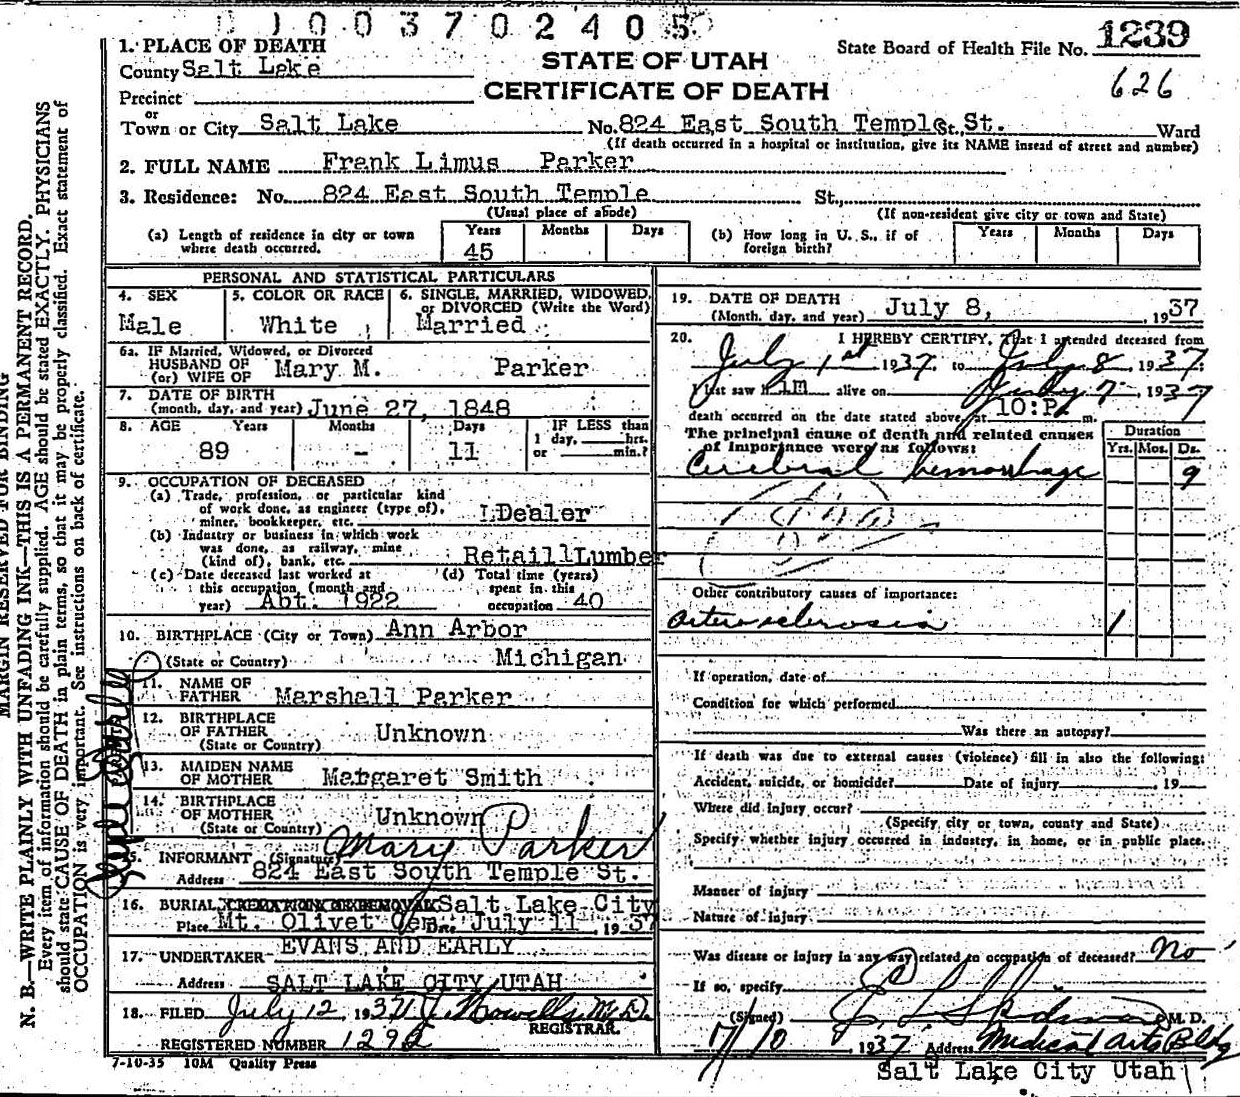 1003702405
1239
State Board of Health File No.
626
STATE OF UTAH
CERTIFICATE OF DEATH
1. PLACE OF DEATH
County Salt Lake
Precinct
or
Town or City Salt Lake No. 824 East South Temple St., St. Ward
(If death occurred in a hospital or institution, give its NAME insead of street and number)
2. FULL NAME Frank Limus Parker
3. Residence: No. 824 East South Temple St.,
(Usual place of abode) (If non-resident give city or town and State)
(a) Length of residence in city or town where death occurred. Years 45 Months Days
(b) How long in U. S., if of foreign birth? Years Months Days
PERSONAL AND STATISTICAL PARTICULARS
4. SEX Male
5. COLOR OR RACE White
6. SINGLE, MARRIED, WIDOWED, or DIVORCED (Write the Word) Married
6a. IF Married, Widowed, or Divorced
HUSBAND OF
(or) WIFE OF Mary M. Parker
7. DATE OF BIRTH
(month, day, and year) June 27, 1848
8. AGE Years 89 Months - Days 11 IF LESS than 1 day, hrs. or min.?
9. OCCUPATION OF DECEASED
(a) Trade, profession, or particular kind
of work done, as engineer (type of),
miner, bookkeeper, etc. Dealer
(b) Industry or business in which work
was done, as railway, mine
(kind of), bank, etc. Retail Lumber
(c) Date deceased last worked at
this occupation, (month and
year) Abt. 1922
(d) Total time (years)
spent in this
occupation 40
10. BIRTHPLACE (City or Town) Ann Arbor
(State or Country) Michigan
11. NAME OF
FATHER Marshall Parker
12. BIRTHPLACE
OF FATHER Unknown
(State or Country)
13. MAIDEN NAME
OF MOTHER Margaret Smith
14. BIRTHPLACE
OF MOTHER Unknown
(State or Country)
15. INFORMANT (Signature) Mary Parker
Address 824 East South Temple St.
16. BURIAL CREMATION OR REMOVAL Salt Lake City
Place Mt. Olivet Cem Date July 11, 1937
17. UNDERTAKER EVANS AND EARLY
Address SALT LAKE CITY UTAH
18. FILED July 12, 1937 Howells M.D.
REGISTRAR.
REGISTERED NUMBER 1292
7-10-35 10M Quality Press
19. DATE OF DEATH
(Month, day, and year) July 8, 1937
20. I HEREBY CERTIFY, That I attended deceased from
July 1st 1937 to July 8 1937
I last saw him alive on July 7 1937
death occurred on the date stated above, at 10:P. m.
The principal cause of death and related causes
of importance were as follows:
Duration
Yrs. Mos. Ds.
Cerebral hemorrhage 9
Other contributory causes of importance:
arteriosclerosis 1
If operation, date of
Condition for which performed
Was there an autopsy?
If death was due to external causes (violence) fill in also the following:
Accident, suicide, or homicide? Date of injury , 19
Where did injury occur?
(Specify city or town, county and State)
Specify whether injury occurred in industry, in home, or in public place.
Manner of injury
Nature of injury
Was disease or injury in any way related to occupation of deceased? No
If so, specify
(Signed) M. D.
7/10, 1937 Address Medical Arts Bldg
Salt Lake City Utah
MARGIN RESERVED FOR BINDING
N. B.—WRITE PLAINLY WITH UNFADING INK—THIS IS A PERMANENT RECORD.
Every item of information should be carefully supplied. AGE should be stated EXACTLY. PHYSICIANS
should state CAUSE OF DEATH in plain terms, so that it may be properly classified. Exact statement of
OCCUPATION is very important. See instructions on back of certificate.